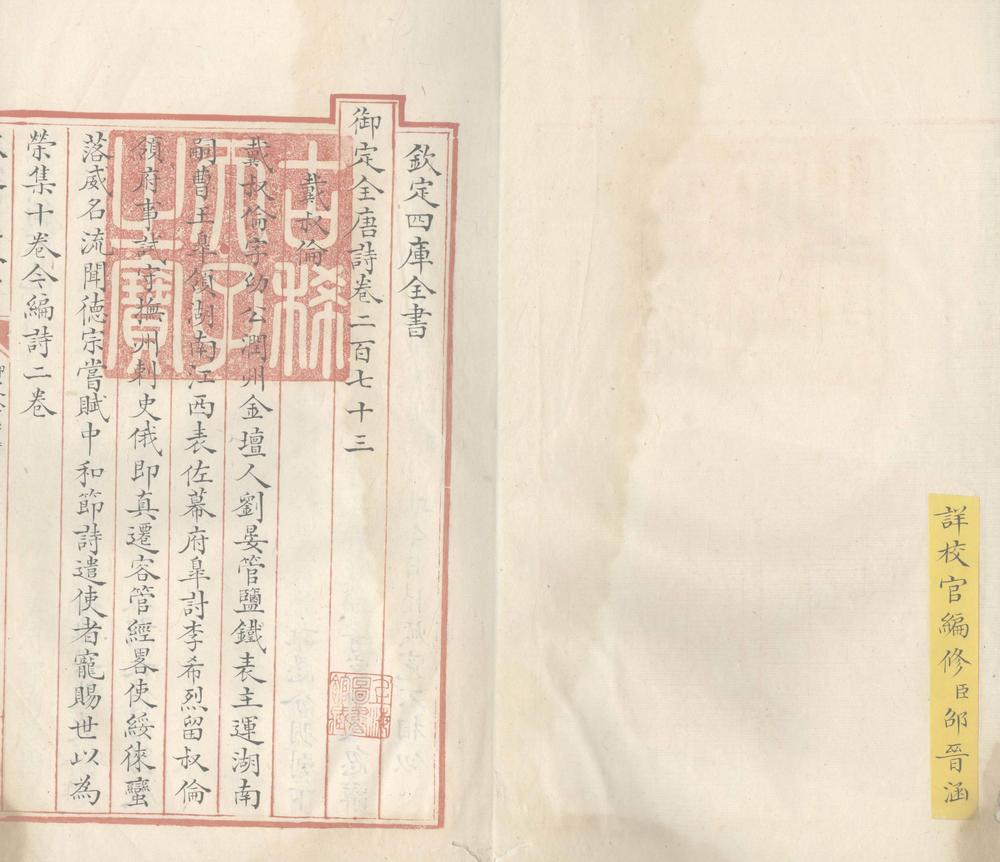 詳校官編修臣邵晉涵
欽定四庫全書
御定全唐詩卷二百七十三
戴叔倫
戴叔倫字幼公潤州金壇人劉晏管鹽鐵表主運湖南
嗣曹王臯領湖南江西表佐幕府臯討李希烈留叔倫
領府事試守撫州刺史俄即真遷容管經畧使綏徠蠻
落威名流聞德宗嘗賦中和節詩遣使者寵賜世以為
榮集十卷今編詩二卷
古稀天子之寶